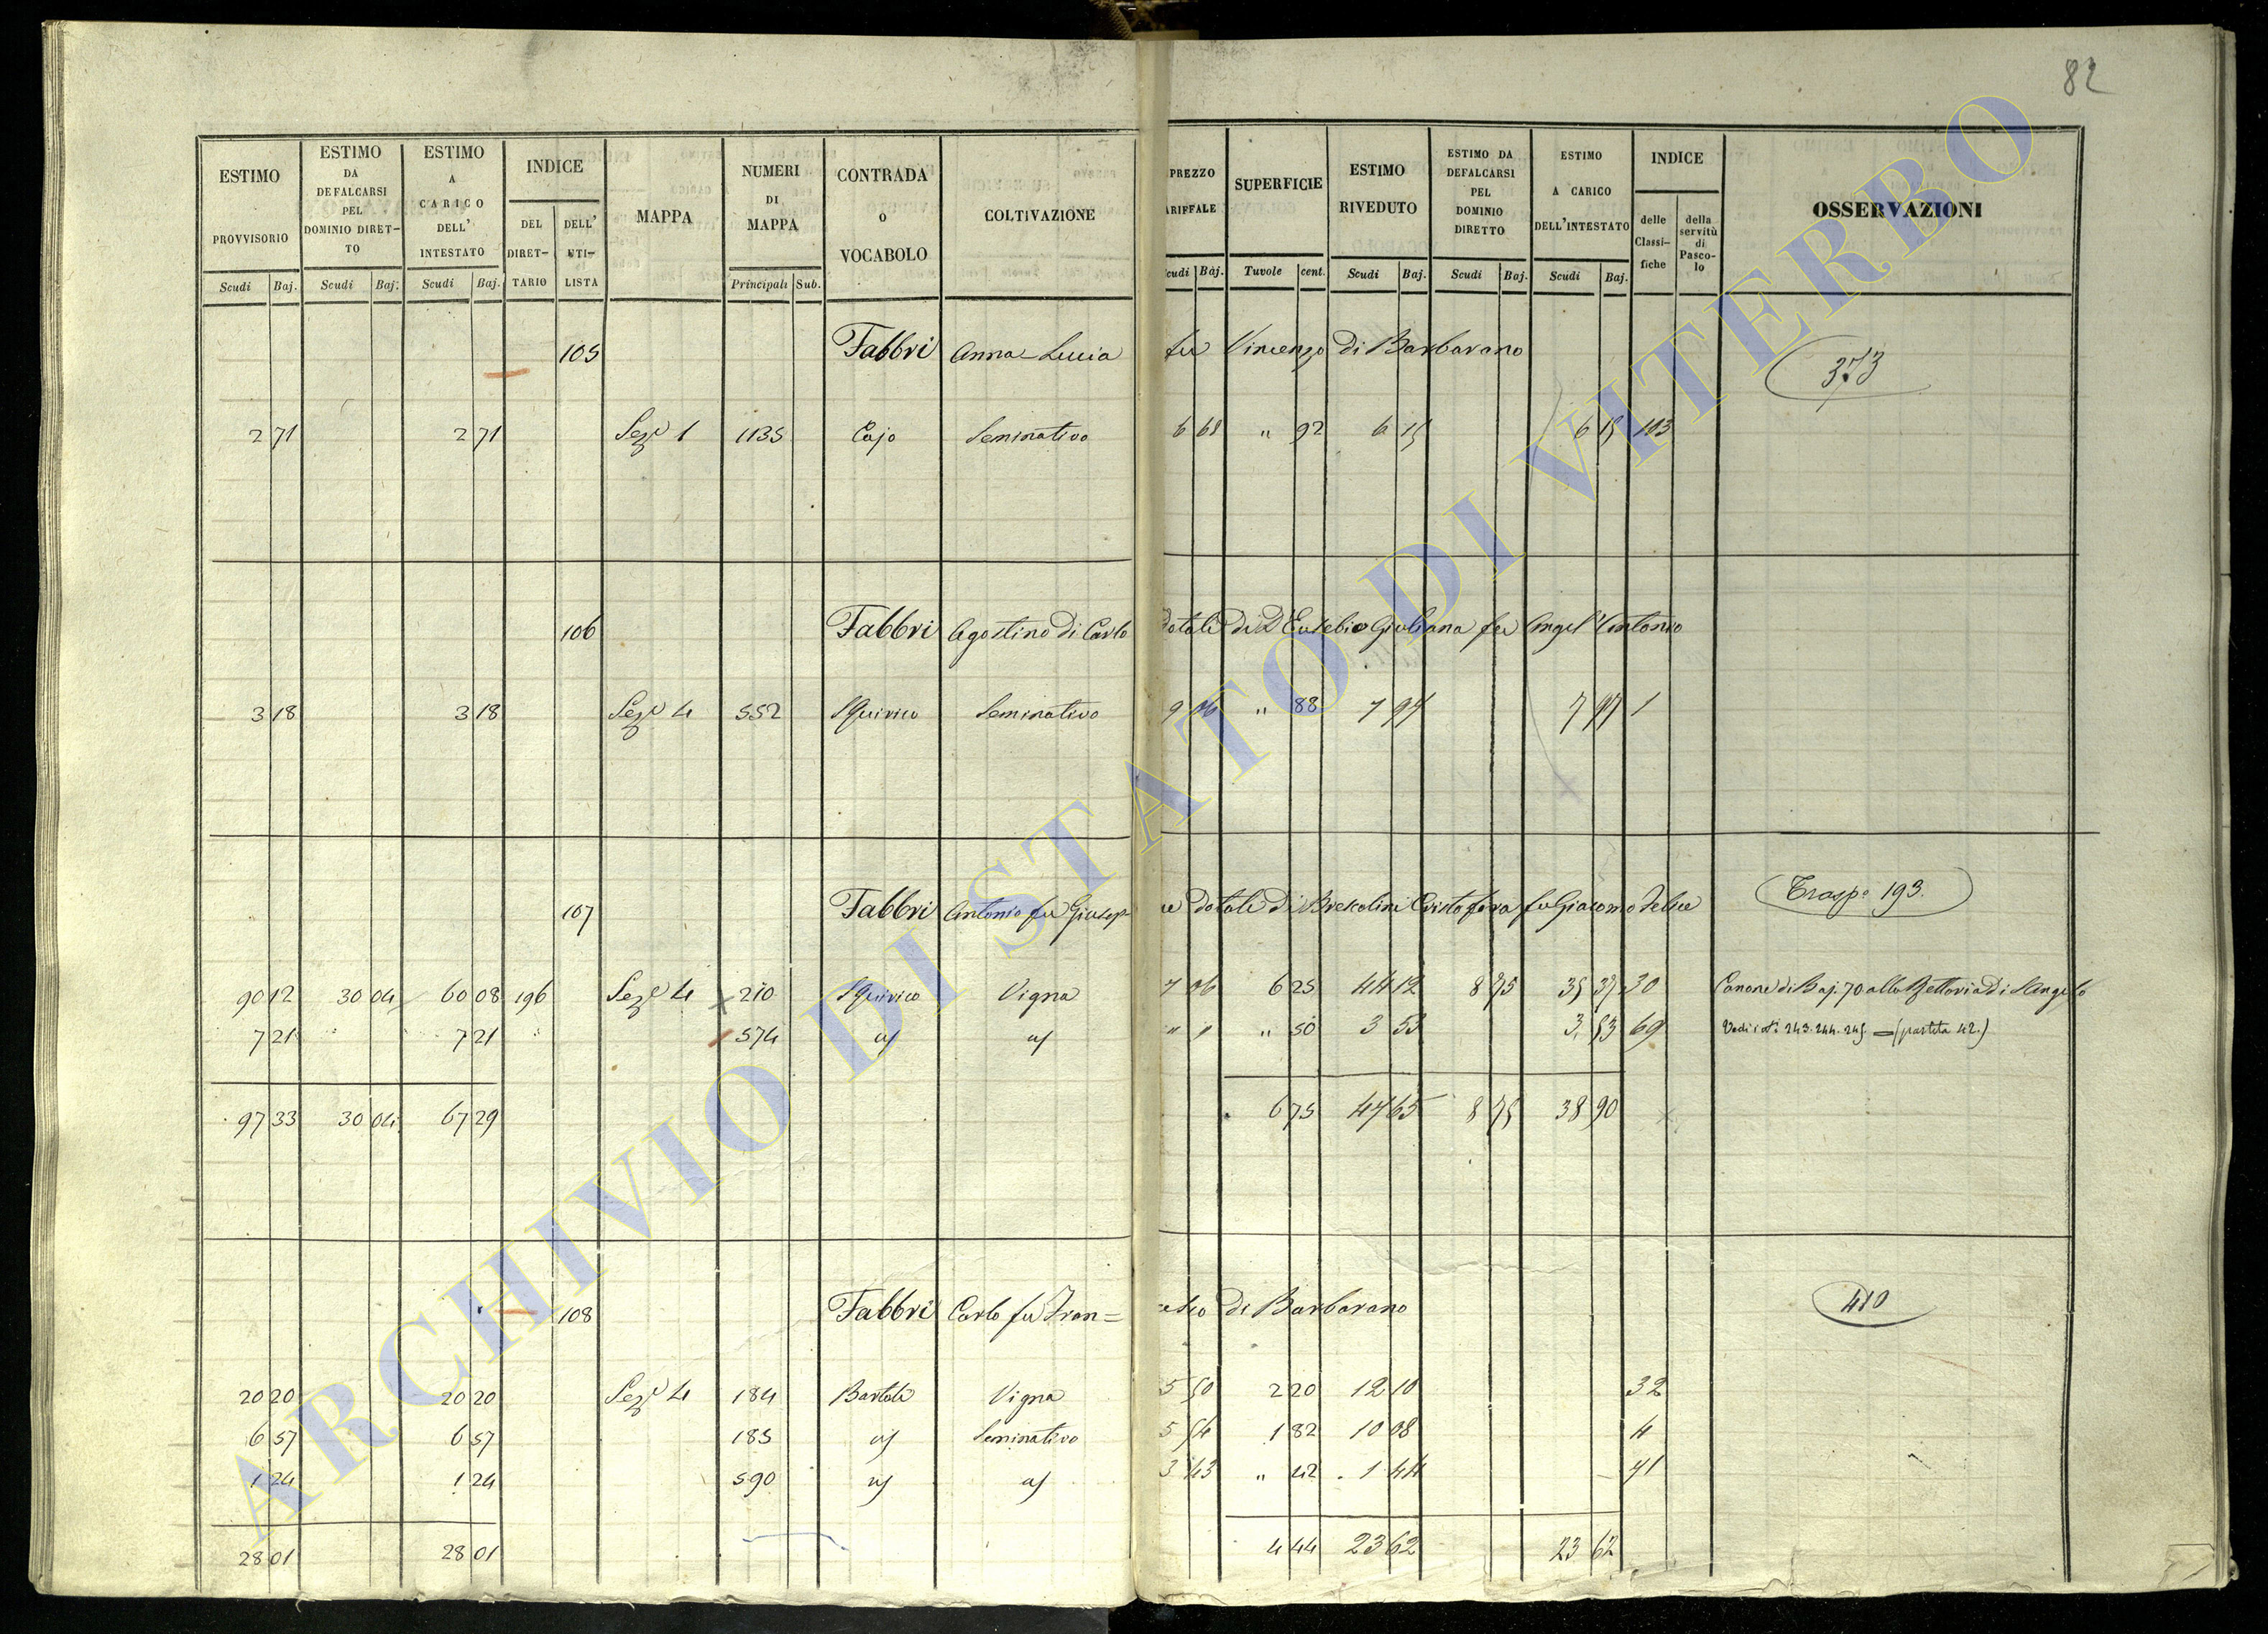 82
ESTIMO PROVVISORIO Scudi Baj. ESTIMO DA DEFALCARSI PEL DOMINIO DIRETTO Scudi Baj. ESTIMO A CARICO DELL' INTESTATO Scudi Baj. INDICE DEL DIRETTARIO DELL' UTILISTA MAPPA NUMERI DI MAPPA Principali Sub. CONTRADA O VOCABOLO COLTIVAZIONE PREZZO ARIFFALE cudi Baj. SUPERFICIE Tavole cent. ESTIMO RIVEDUTO Scudi Baj. ESTIMO DA DEFALCARSI PEL DOMINIO DIRETTO Scudi Baj. ESTIMO A CARICO DELL'INTESTATO Scudi Baj. INDICE delle Classifiche della servitù di Pascolo OSSERVAZIONI
105 Fabbri Anna Lucia fu Vincenzo di Barbarano 373
2 71 2 71 Sez.e 1 1135 Cajo Seminativo 6 68 " 92 6 15 6 15 103
106 Fabbri Agostino di Carlo dotali di D'Eusebio Giuliana fu Angel'Antonio
3 18 3 18 Sez.e 4 552 S Quirico Seminativo 9 06 " 88 7 97 7 97 1
107 Fabbri Antonio fu Giusep- pe dotale di Brescolini Cristofora fu Giacomo Felice Trasp.o 193
90 12 30 04 60 08 196 Sez.e 4 210 S Quirico Vigna 7 06 6 25 44 12 8 75 35 37 30 Canone di Baj. 70 alla Rettoria di S Angelo
7 21 7 21 " 574 " 50 3 53 3 53 69 Vedi i Ni. 243. 244. 245. = (partita 42.)
97 33 30 04 67 29 6 75 47 65 8 75 38 90
108 Fabbri Carlo fu Fran= cesco di Barbarano 410
20 20 20 20 Sez.e 4 184 Bartoli Vigna 5 50 2 20 12 10 32
6 57 6 57 185 Seminativo 5 54 1 82 10 08 4
1 24 1 24 590 3 43 " 42 1 44 41
28 01 28 01 4 44 23 62 23 62
ARCHIVIO DI STATO DI VITERBO